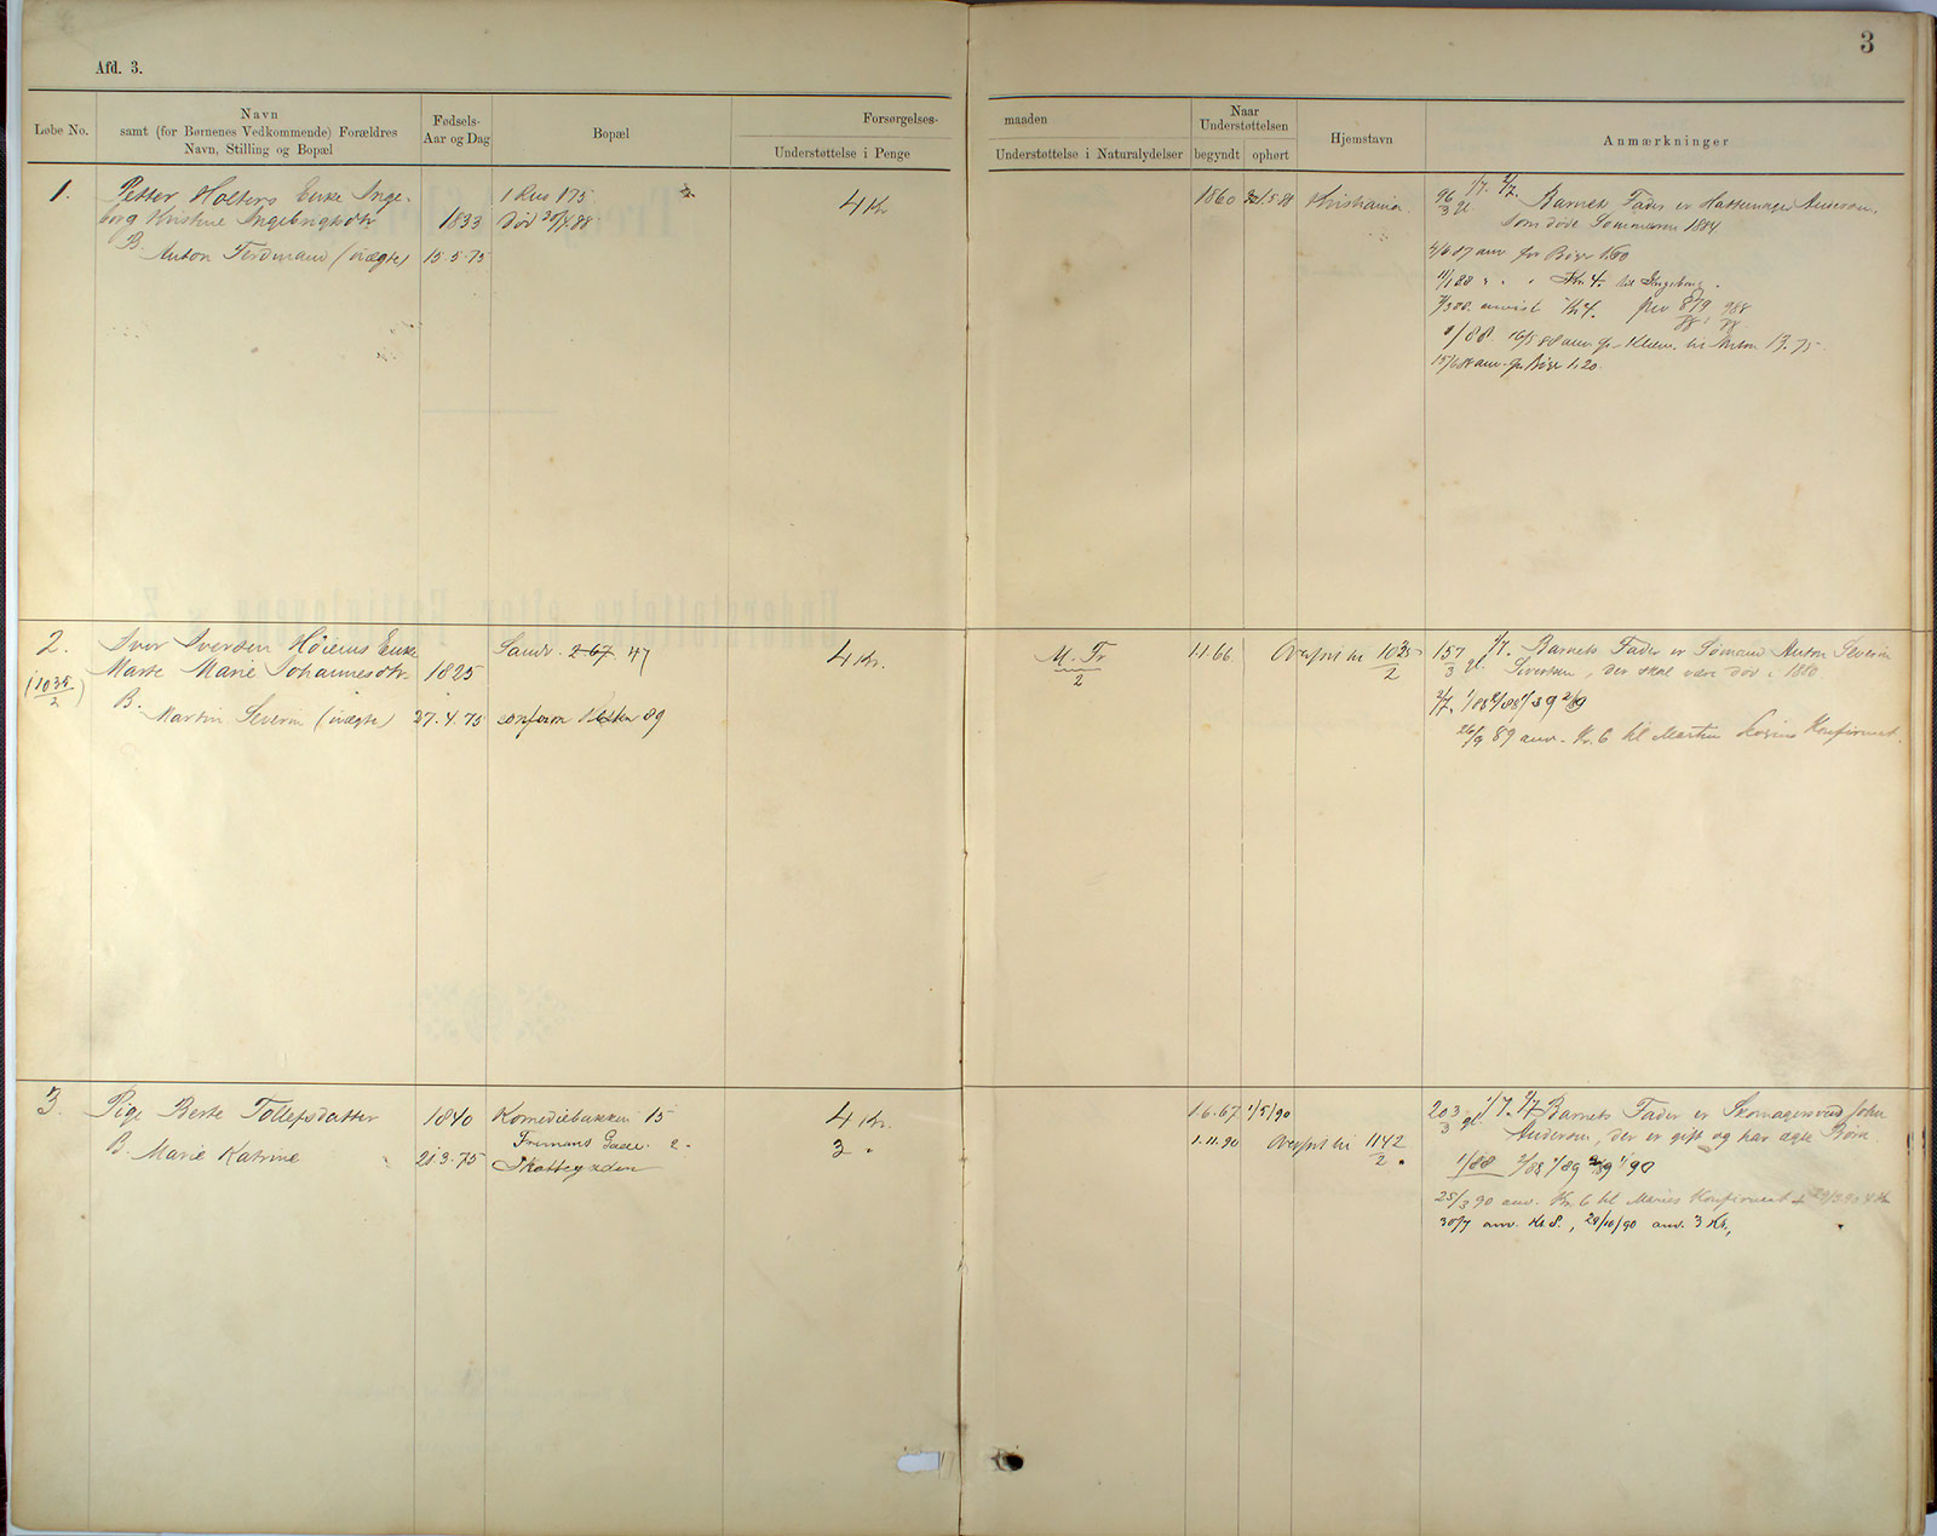 3
Afd. 3.
Løbe No.
Navn
samt (for Børnenes Vedkommende) Forældres
Navn, Stilling og Bopæl
Fødsels-
Aar og Dag
Bopæl
Forsørgelses-
Understøttelse i Penge
maaden
Understøttelse i Naturalydelser
Naar
Understøttelsen
begyndt
ophørt
Hjemstavn
Anmærkninger
1.
Petter Holters Enke Inge-
borg Kristine Ingebrigtsdtr
1833
B.
Anton Ferdinand (uægte)
15.5.75
175
død 88
4 Kr
1860
Kristiania.
96/3 gl. 1/7. 2/7. Barnets Fader er Andersen,
som døde Sommeren 1884
4/6 87 anv for Bøger 1.60
Kr. 4. til Ingeborg.
anvist Kr 4.
1/88. 16/5 88 anv. til Anton 13.75
15/6 88 anv. for Bøger 1.20.
2.
(1035/2)
Iver Iversen Høiens Enke
Marte Marie Johannesdtr.
1825
B.
Martin Severin (uægte)
27.4.75
Sandv. 2 67 47
89
4 Kr.
M. Tr
2
1.1.66
Overført til 1035/2
157/3 gl. 1/7. Barnets Fader er Sømand Anton Severin
Sivertsen, der skal være død i 1880.
26/9 89 anv. Kr. 6 til Martin Konfirmat.
3.
Pige Berte Tollefsdatter
1840
B. Marie Katrine
21.3.75
Komediebakken 15
Gade. 2.
4 Kr.
3 "
1.6.67
1/5/90
1.11.90
Overført til 1142/2.
203/3 gl. 1/7. 2/7 Barnets Fader er Skomagersvend John
Andersen, der er gift og har ægte Børn.
1/88 2/88 1/89 2/89 1/90
25/3 90 anv. Kr. 6 til Maries Konfirmat
30/7 anv. Kr. 8., 29/10/90 anv. 3 Kr.,